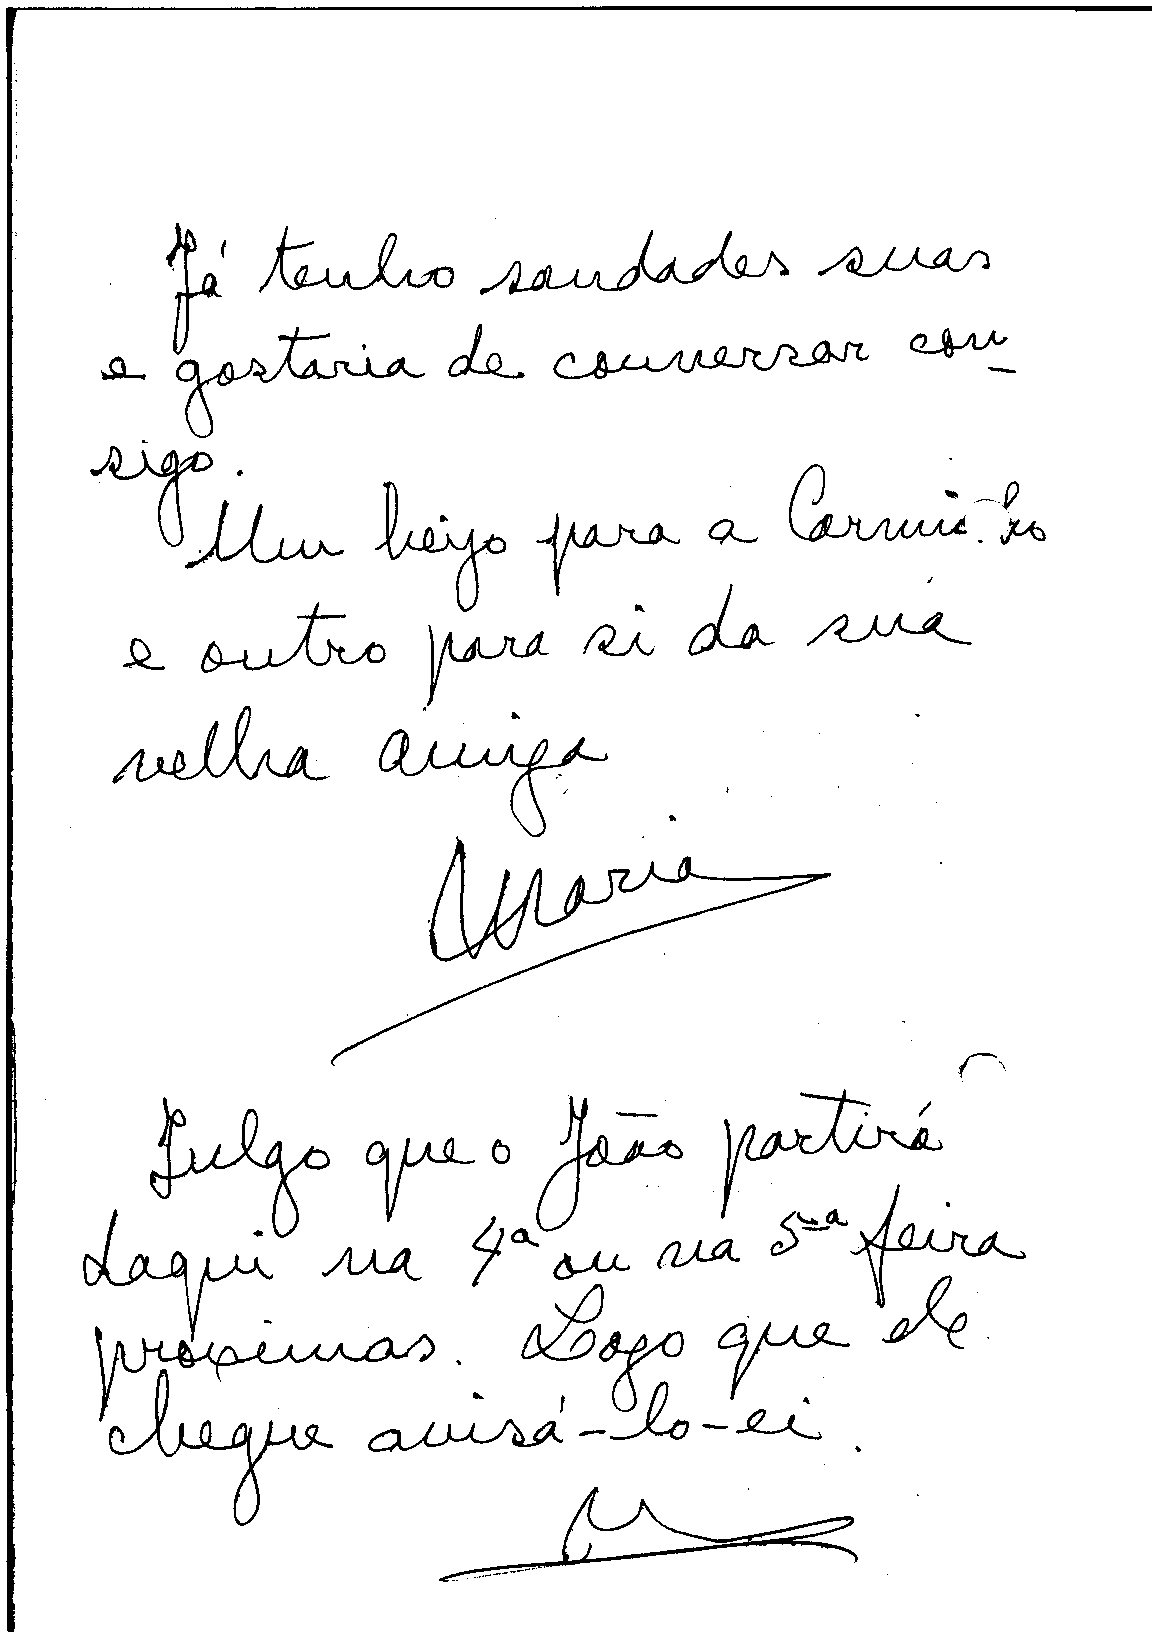 Já tenho saudades suas
e gostaria de conversar con-
sigo.
Um beijo para a
e outro para si da sua
velha amiga
Maria
Julgo que o João partirá
daqui na 4ª ou na 5ª feira
próximas. Logo que ele
chegue avisá-lo-ei.